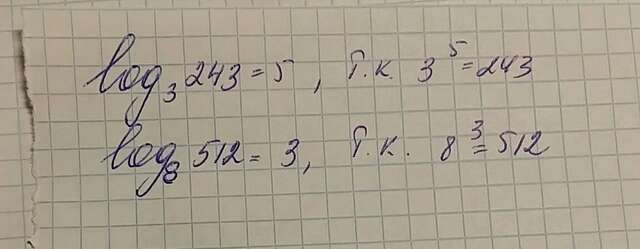 log₃ 243 = 5, т.к. 3⁵ = 243
log₈ 512 = 3, т.к. 8³ = 512